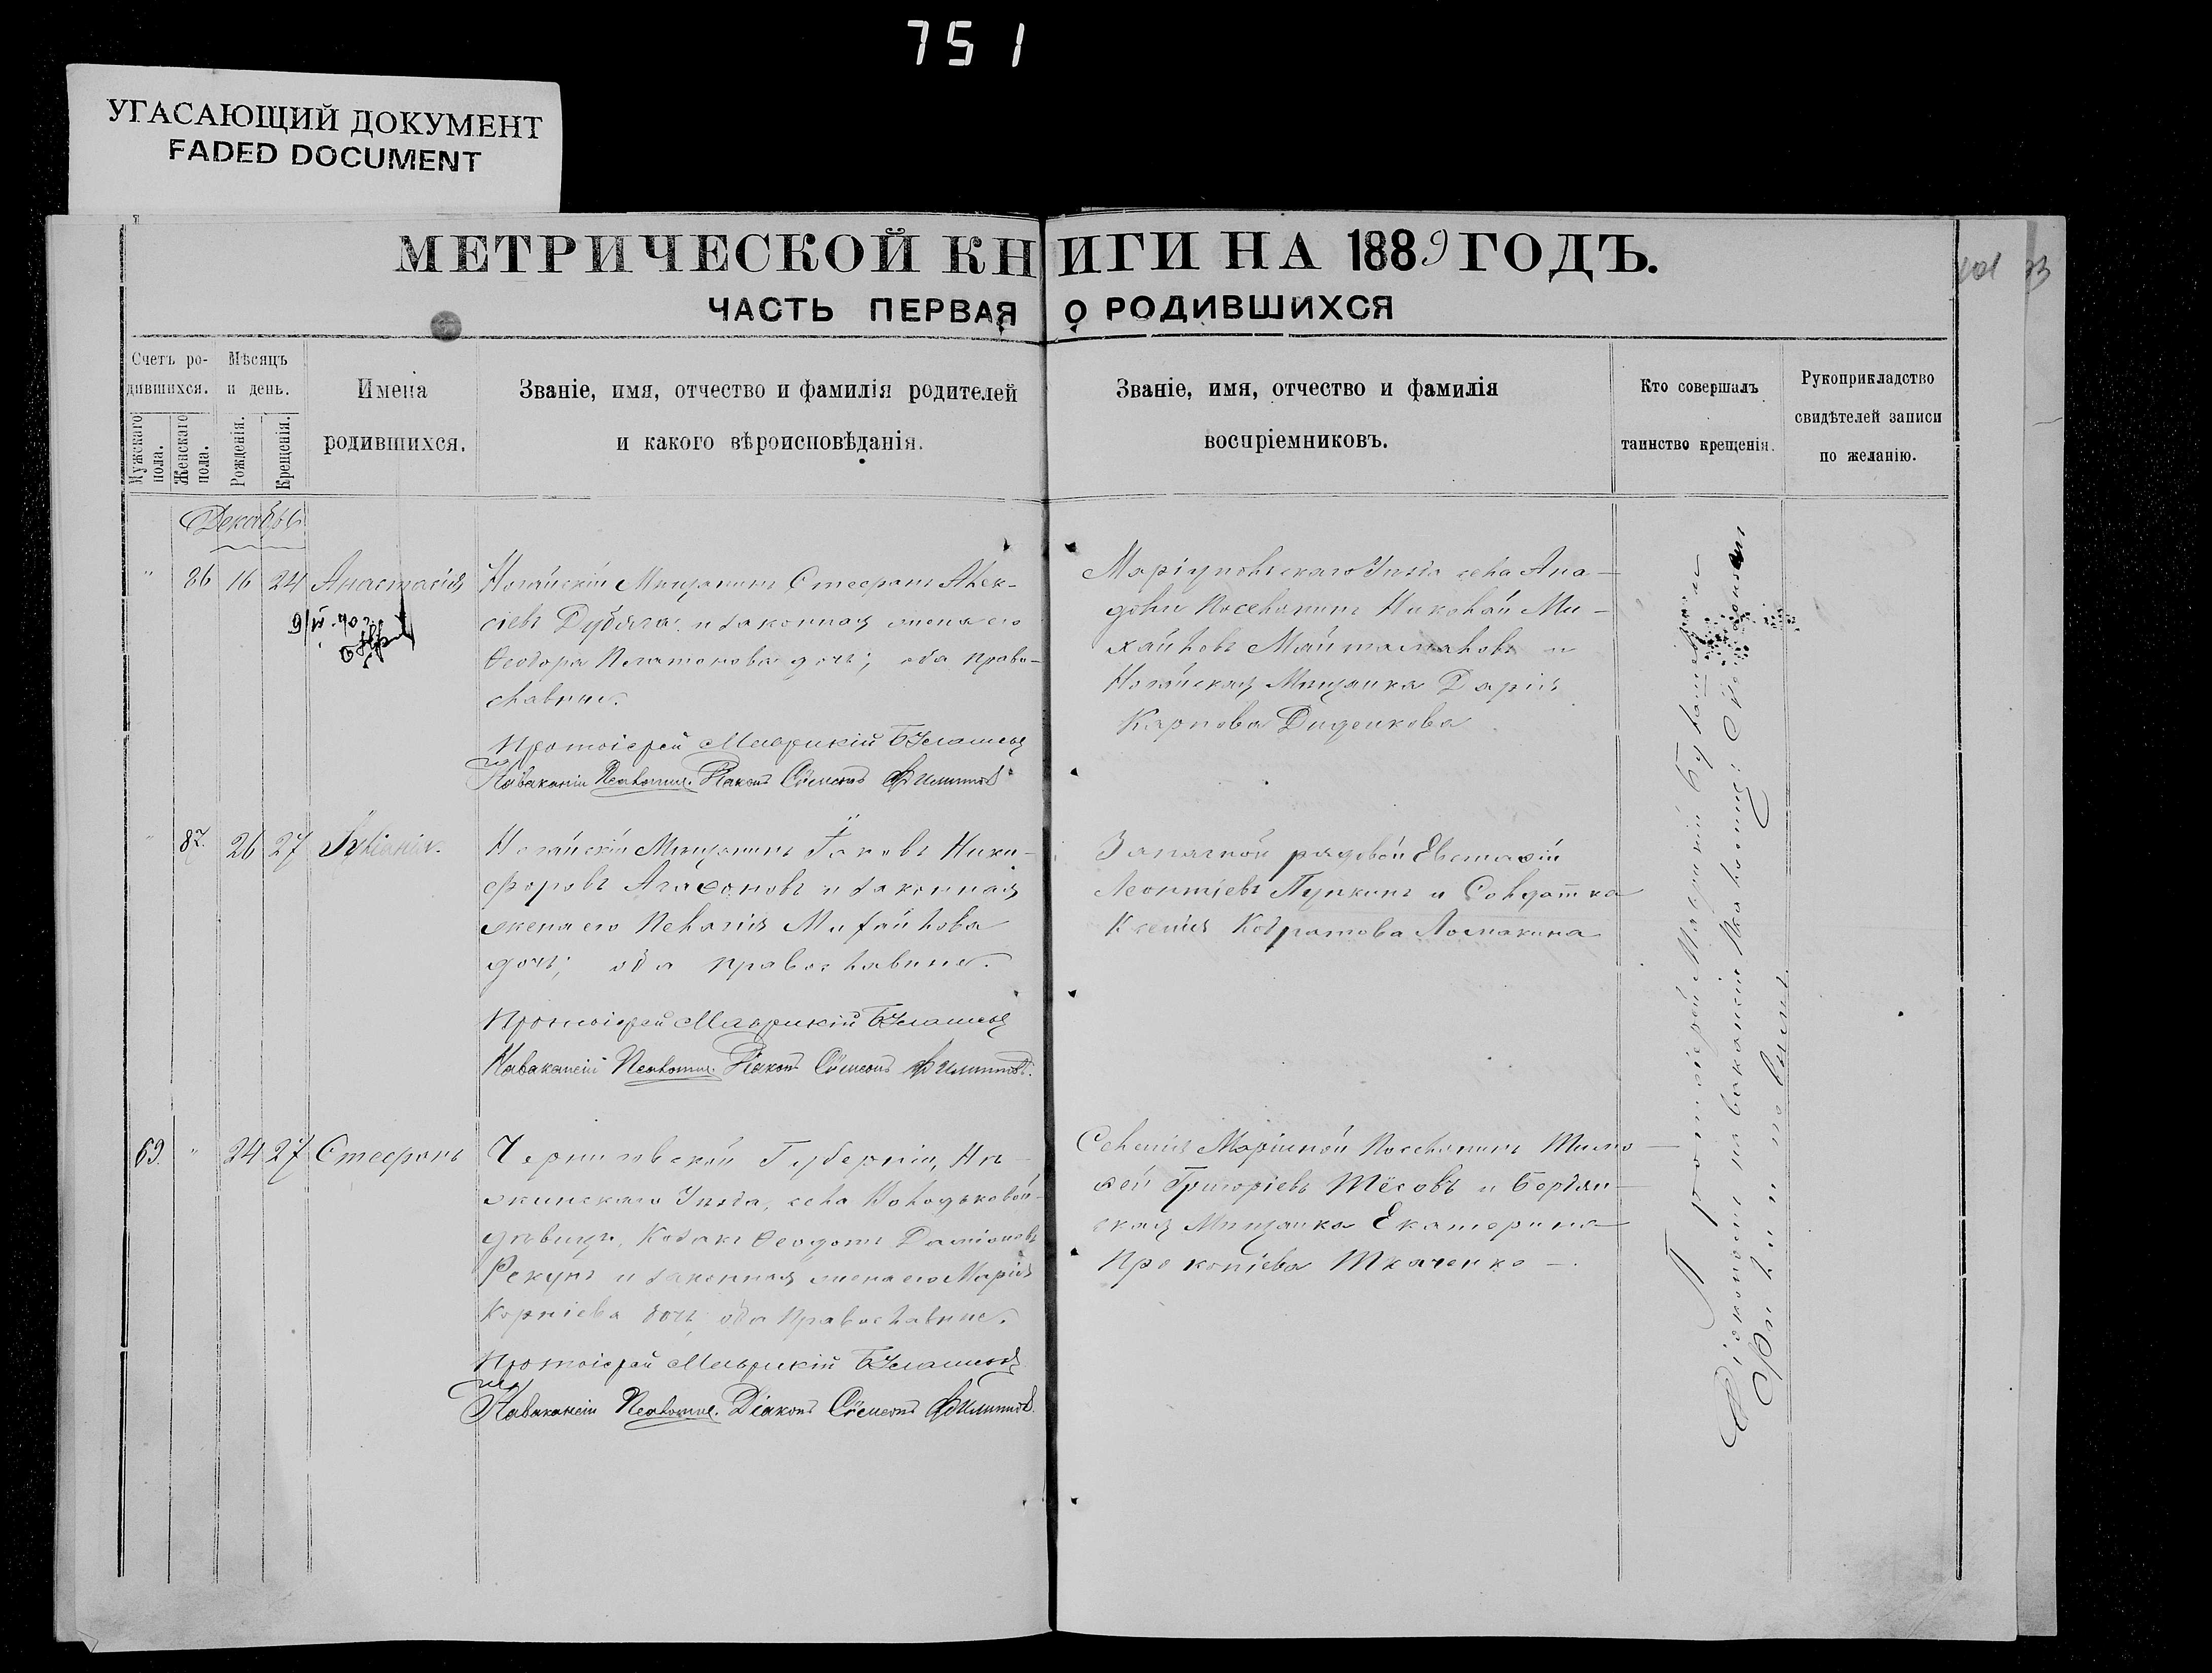 751
УГАСАЮЩИЙ ДОКУМЕНТ
FADED DOCUMENT
МЕТРИЧЕСКОЙ КНИГИ НА 1889 ГОДЪ.
ЧАСТЬ ПЕРВАЯ О РОДИВШИХСЯ
Счетъ ро-
дившихся.
Мужскаго пола.
Женскаго пола.
Мѣсяцъ
и день.
Рожденія.
Крещенія.
Имена
родившихся.
Званіе, имя, отчество и фамилія родителей
и какого вѣроисповѣданія.
Званіе, имя, отчество и фамилія
воспріемниковъ.
Кто совершалъ
таинство крещенія.
Рукоприкладство
свидѣтелей записи
по желанію.
Декабрь
" 86 16 24 Анастасія
Ногайскій Мѣщанинъ Стефанъ Алек-
сіевъ Дубяга и законная жена его
Ѳеодора Платонова дочь; оба право-
славные.
Протоіерей Маврикій
Діаконъ Сѵмеонъ Филипповъ
Маріупольскаго Уѣзда села Ана-
доли Поселянинъ Николай Ми-
хайловъ Майтамаловъ и
Ногайская Мѣщанка Дарія
Карпова Диденкова
" 87. 26 27 Іуліанія.
Ногайскій Мѣщанинъ Іаковъ Ники-
форовъ Агафоновъ и законная
жена его Пелагія Михайлова
дочь; оба православные.
Протоіерей Маврикій
Діаконъ Сѵмеонъ Филипповъ.
Запасной рядовой Евстафій
Леонтіевъ Пупкинъ и Солдатка
Ксенія Кодратова Ломакина
69. " 24 27 Стефанъ
Черниговской Губерніи, Нѣ-
жинскаго Уѣзда, села Володьковой-
дѣвицы, Козакъ Ѳеодотъ Даміановъ
Рекунъ и законная жена его Марія
Корніева дочь, оба Православные.
Протоіерей Маврикій
Діаконъ Сѵмеонъ Филипповъ.
Селенія Маріиной Поселянинъ Тимо-
ѳей Григоріевъ Тёсовъ и Бердян-
ская Мѣщанка Екатерина
Прокопіева Ткаченко —.
Протоіерей Маврикій
Филипповымъ.